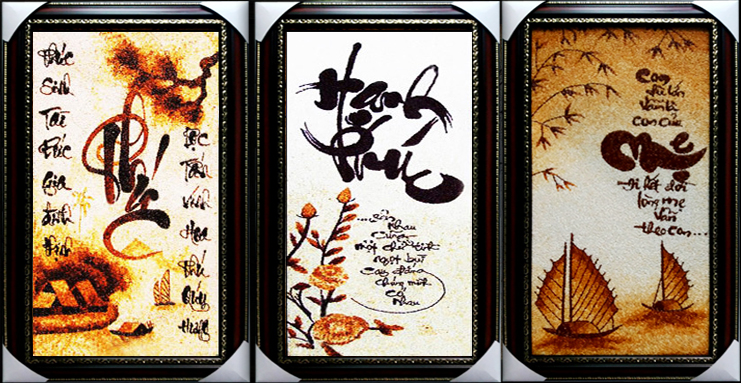 Phúc
Sinh
Tài
Đức
Gia
đình
Thịnh
Phúc
Lộc
Tấn
Vinh
Hoa
Phú
Quý
Hưng
Hạnh
Phúc
...bên
nhau
Cùng
một chữ tình
ngọt bùi
cay đắng
chúng mình
có
nhau
Con
dù lớn
vẫn là
con của
Mẹ
Đi hết đời
lòng mẹ
vẫn
theo con...